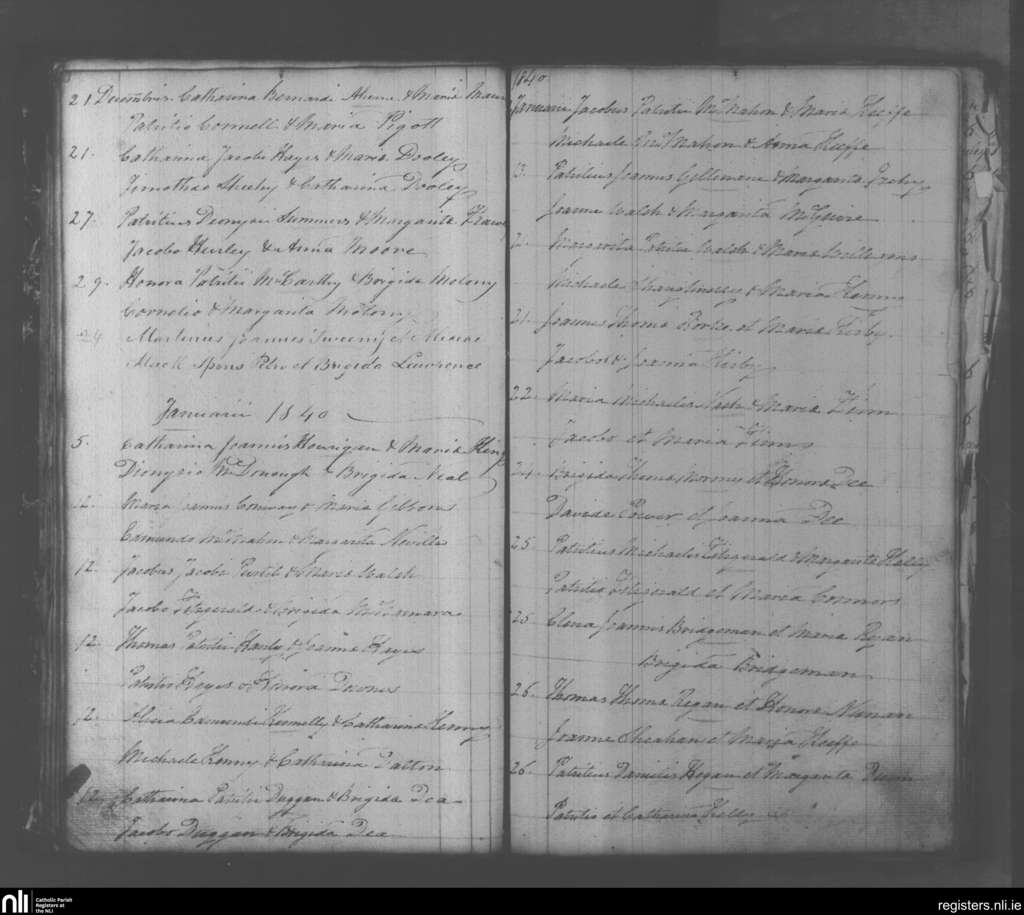 21 Decembris Catharina Bernardi Aherne & Maria
Patritio Connell & Maria Pigott
21. Catharina Jacobi Hayes & Maria Dooley
Timotheo Sheehy & Catharina Dooley
27. Patritius Dionysii Summers & Margarita
Jacobo Hurley & Anna Moore
29. Honora Patritii McCarthy & Brigida Molony
Cornelio & Margarita Molony
24 Martinus Joannis Sweeny et Mariae
Mack Spons Petro et Brigida Lawrence
Januarii 1840
5. Catharina Joannis Hourigan & Maria King
Dionysio McDonough & Brigida Neal
12. Maria Joannis Conway & Maria Gibbons
Edmundo McMahon & Margarita Neville
12. Jacobus Jacobi Purtil & Maria Walsh
Jacobo Fitzgerald & Brigida McNamara
12. Thomas Patritii Hanly & Joanna Hayes
Patritio Hayes & Honora Downes
12. Alicia Edmundi Kennelly & Catharina Kenny
Michaele Kenny & Catharina Dalton
12. Catharina Patritii Duggan & Brigida Dea
Jacobo Duggan & Brigida Dea
1840
Januarii Jacobus Patritii McMahon & Maria Keeffe
Michaele McMahon & Anna Keeffe
13. Patritius Joannis & Margarita
Joanne Walsh & Margarita McGuire
Margarita Patritii Walsh & Maria
Michaele & Maria
21. Joannes Thoma Borke et Maria Kirby.
Jacobo & Joanna Kirby
22. Maria Michaelis & Maria Flinn
Jacobo et Maria Flinn
24. Brigida Thoma Moroney et Honora Dee
Davide Power et Joanna Dee
25. Patritius Michaelis Fitzgerald & Margarita Haley
Patritio Fitzgerald et Maria Connors
25. Elena Joannis Bridgeman et Maria Ryan
Brigida Bridgeman
26. Thomas Thoma Regan et Honora Nunan
Joanne Sheahan et Maria Keeffe
26. Patritius Danielis Hogan et Margarita Dunn
Patritio et Catharina
nli
Catholic Parish
Registers at
the NLI
registers.nli.ie